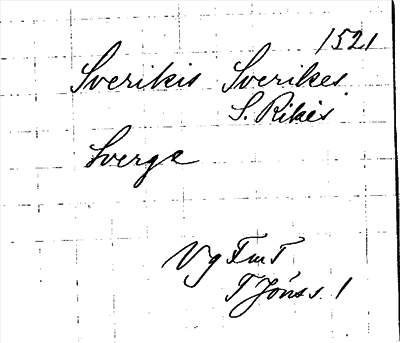 1521
Sverikis Sverikes
S. Rikes
Sverge
Vg FmT
T Jöns s. 1